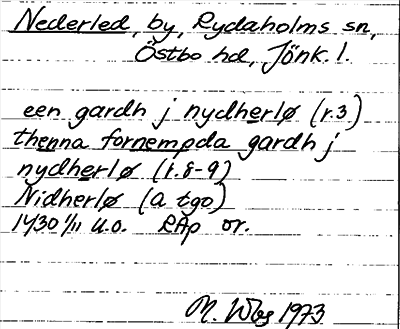 Nederled, by, Rydaholms sn,
Östbo hd, Jönk. l.
een gardh j nydherlø (r.3)
thenna fornempda gardh j
nydherlø (r.8-9)
Nidherlø (a tgo)
1430 1/11 u.o. RAp or.
M. 1973